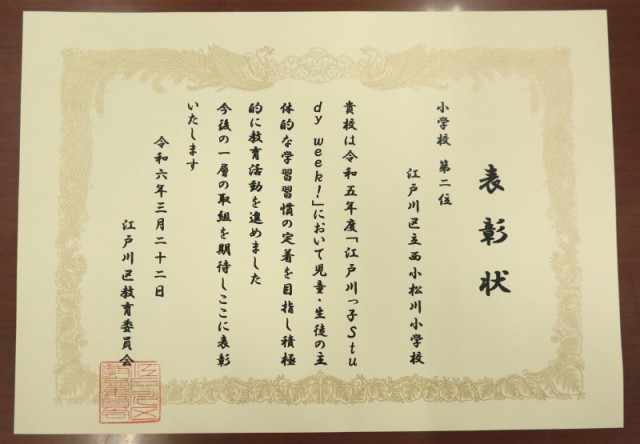 表彰状
小学校 第二位
江戸川区立西小松川小学校
貴校は令和五年度「江戸川っ子Stu
dy week!」において児童・生徒の主
体的な学習習慣の定着を目指し積極
的に教育活動を進めました
今後の一層の取組を期待しここに表彰
いたします
令和六年三月二十二日
江戸川区教育委員会